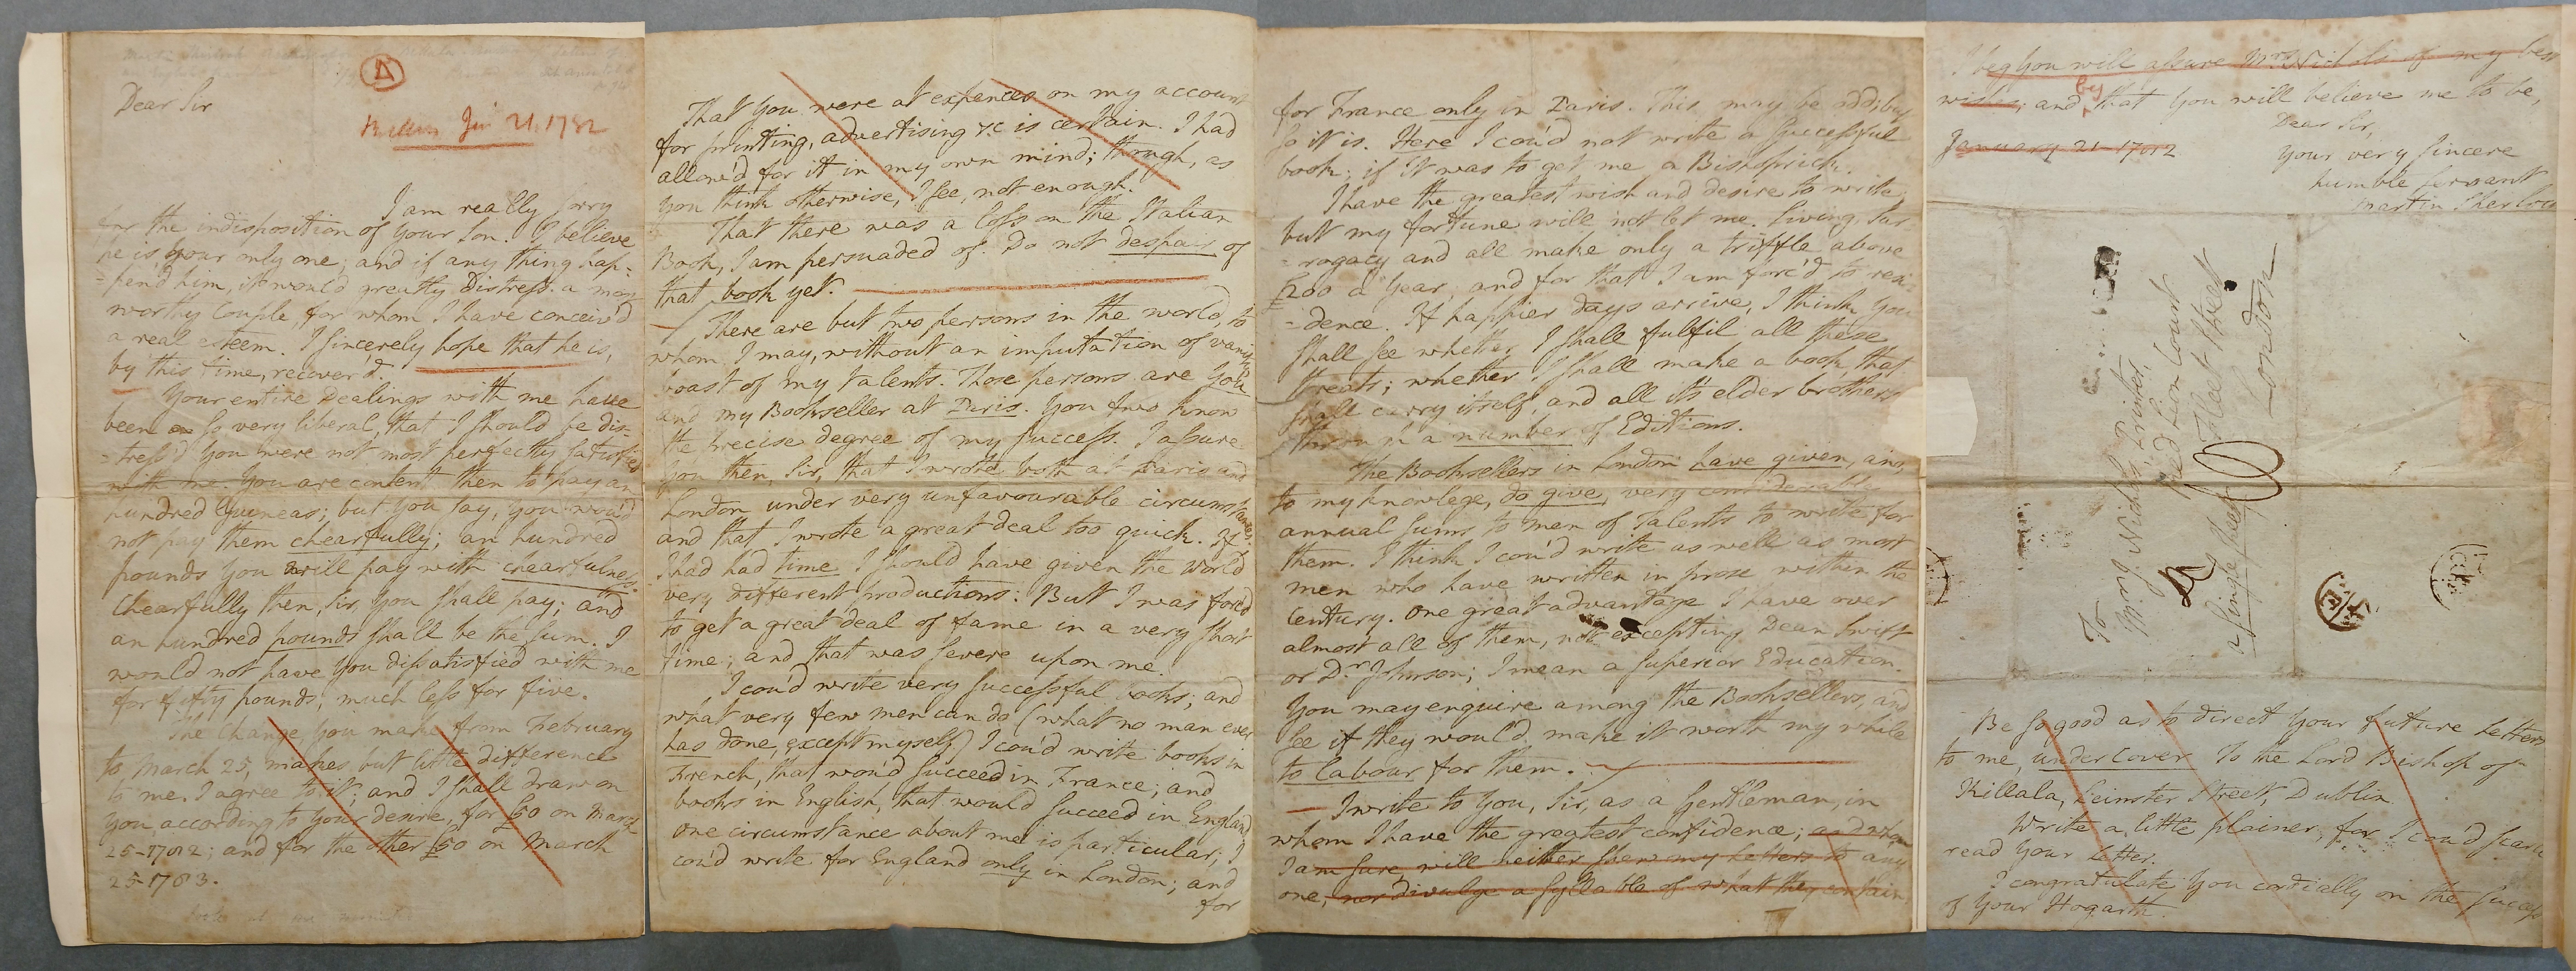 Dear Sir
Jan 21. 1782
I am really sorry
for the indisposition of your Son. I believe
he is your only one; and if any thing hap:
=pen'd him, it would greatly Distress a most
worthy Couple, for whom I have conceiv'd
a real esteem. I sincerely hope that he is,
by this time, recover'd.
Your entire Dealings with me have
been so very liberal, that I should be dis-
=tress'd you were not most perfectly satisfied
with me. You are content then to pay an
hundred Guineas; but you say, you wou'd
not pay them chearfully; an hundred
pounds you will pay with chearfulness.
Chearfully then, Sir, you shall pay; and
an hundred pounds shall be the sum. I
would not have you dissatisfied with me
for fifty pounds, much less for five.
The Change you make from February
to March 25, makes but little difference
to me. I agree to it; and I shall draw on
you according to your desire, for £50 on March
25-1782; and for the other £50 on March
25-1783.
That you were at expences on my account
for printing, advertising &c is certain. I had
allow'd for it in my own mind; though, as
you think otherwise, I see, not enough.
That there was a loss on the Italian
Book, I am persuaded of. Do not despair of
that book yet.
There are but two persons in the world, to
whom I may, without an imputation of vanity,
boast of my talents. Those persons are You
and my Bookseller at Paris. You two know
the precise degree of my success. I assure
you then, Sir, that I wrote both at Paris and
London under very unfavourable circumstances
and that I wrote a great deal too quick. If
I had had time I should have given the world
very different productions: But I was forc'd
to get a great deal of fame in a very short
time; and that was severe upon me.
I cou'd write very successful books; and
what very few men can do (what no man ever
has done, except myself) I cou'd write books in
French, that wou'd succeed in France; and
books in English, that would succeed in England
One circumstance about me is particular; I
cou'd write for England only in London; and
for
for France only in Paris. This may be odd, but
so it is. Here I cou'd not write a successful
book, if it was to get me a Bishoprick.
I have the greatest wish and desire to write
but my fortune will not let me. Living, Sur
=rogacy and all make only a triffle above
£200 a year, and for that I am forc'd to resi=
=dence. If happier days arrive, I think, you
shall see whether I shall fulfil all these
threats; whether I shall make a book, that
shall carry itself, and all its elder brothers
thro' a number of Editions.
The Booksellers in London have given, and
to my knowlege, do give, very considerable
annual sums to men of Talents to write for
them. I think I cou'd write as well as most
men who have written in prose within the
Century. One great advantage I have over
almost all of them, not excepting Dean Swift
or Dr. Johnson; I mean a superior Education.
You may enquire among the Booksellers, and
see if they would make it worth my while
to labour for them.
I write to you, Sir, as a Gentleman, in
whom I have the greatest confidence; and whom
I am sure, will neither shew my Letters to any
one, nor divulge a syllable of what they contain.
I beg you will assure Mrs. Nichols of my best
wishes; and that you will believe me to be,
by
Dear Sir,
January 21-1782
your very sincere
humble servant
Martin Sherlock
To
Mr. J. Nichols, Printer,
Red Lion Court
Fleet Street
London
a single sheet
Be so good as to direct your future Letters
to me, under cover To the Lord Bishop of
Killala, Leinster Street, Dublin.
Write a little plainer, for I cou'd scarce
read your Letter.
I congratulate you cordially on the success
of your Hogarth.